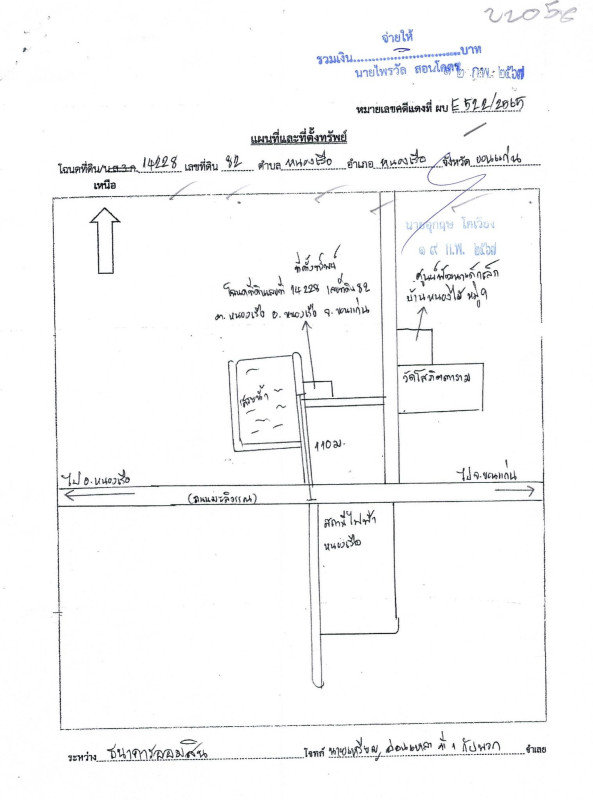 22056
จ่ายให้
รวมเงิน..............................บาท
นายไพรวัล สอนโคตร ๑๒ ก.พ. ๒๕๖๗
หมายเลขคดีแดงที่ ผบ E 522/2565
แผนที่และที่ตั้งทรัพย์
โฉนดที่ดิน/น.ส.3 ก. 14228 เลขที่ดิน 82 ตำบล หนองเรือ อำเภอ หนองเรือ จังหวัด ขอนแก่น
เหนือ
๑๙ ก.พ. ๒๕๖๗
ที่ตั้งทรัพย์
โฉนดที่ดินเลขที่ 14228 เลขที่ดิน 82
ต. หนองเรือ อ. หนองเรือ จ. ขอนแก่น
ศูนย์พัฒนาเด็กเล็ก
บ้านหนองไม้ หมู่ 9
วัดโสภิตตาราม
สระน้ำ
110 ม.
ไป อ. หนองเรือ
ไป จ. ขอนแก่น
(ถนนมะลิวรรณ)
สถานีไฟฟ้า
หนองเรือ
ระหว่าง ธนาคารออมสิน โจทก์ ที่ 1 กับพวก จำเลย